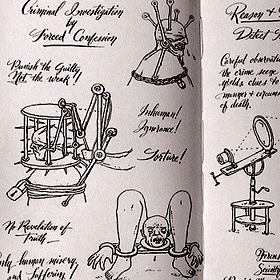 Criminal Investigation
by
Forced Confession
Punish the Guilty
Not the weak
Inhuman!
Ignorance!
Torture!
No Revelation of
Truth -
Only human misery
and Suffering
Reason &
Careful observat
the crime scene
yields, clues to
of death.